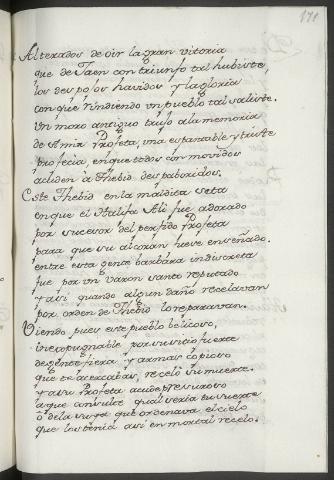 171
Alterados de oir la gran vitoria
que de Jaen con triunfo tal hubiste
los despojos havidos y la gloria
con que rindiendo un pueblo tal saliste.
Un moro antiguo trujo a la memoria
de Amir Profeta, una espantable y triste
profecia, en que todos conmovidos
aciden a Thebid despaboridos.
Este Thebid en la maldita seta
en que el Halifa Ali fue adorado
por sucesor del perfido Profeta
para que su alcoran fuese enseñado.
entre esta gente barbara indiscreta
fue por un varon santo reputado
y asi quando algun daño recelavan
por orden de Thebid lo reparavan.
Viendo pues este pueblo belicoso,
inexpugnable por su sitio fuerte
de gente fiera y armas copioso
que te acercabas, receló su muerte.
y a su Profeta acude presuroso
a que consulte qual seria su suerte
ó de la suya que ordenava el cielo
que los tenia asi en mortal recelo.